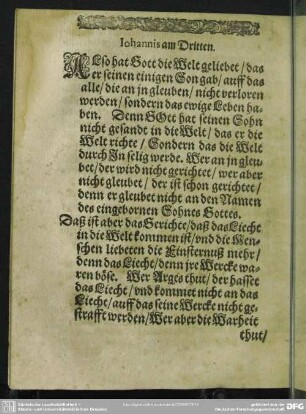 Iohannis am Dritten.
ALso hat Gott die Welt geliebet / das
er seinen einigen Son gab / auff das
alle / die an jn gleuben / nicht verloren
werden / sondern das ewige Leben ha-
ben. Denn GOtt hat seinen Sohn
nicht gesandt in die Welt / das er die
Welt richte / Sondern das die Welt
durch In selig werde. Wer an jn gleu-
bet / der wird nicht gerichtet / wer aber
nicht gleubet / der ist schon gerichtet /
denn er gleubet nicht an den Namen
des eingebornen Sohnes Gottes.
Daß ist aber das Gerichte / daß das Liecht
in die Welt kommen ist / vnd die Men-
schen liebeten die Finsternuß mehr /
denn das Liecht / denn jre Wercke wa-
ren böse. Wer Arges thut / der hasset
das Liecht / vnd kommet nicht an das
Liecht / auff das seine Wercke nicht ge-
strafft werden / Wer aber die Warheit
thut /